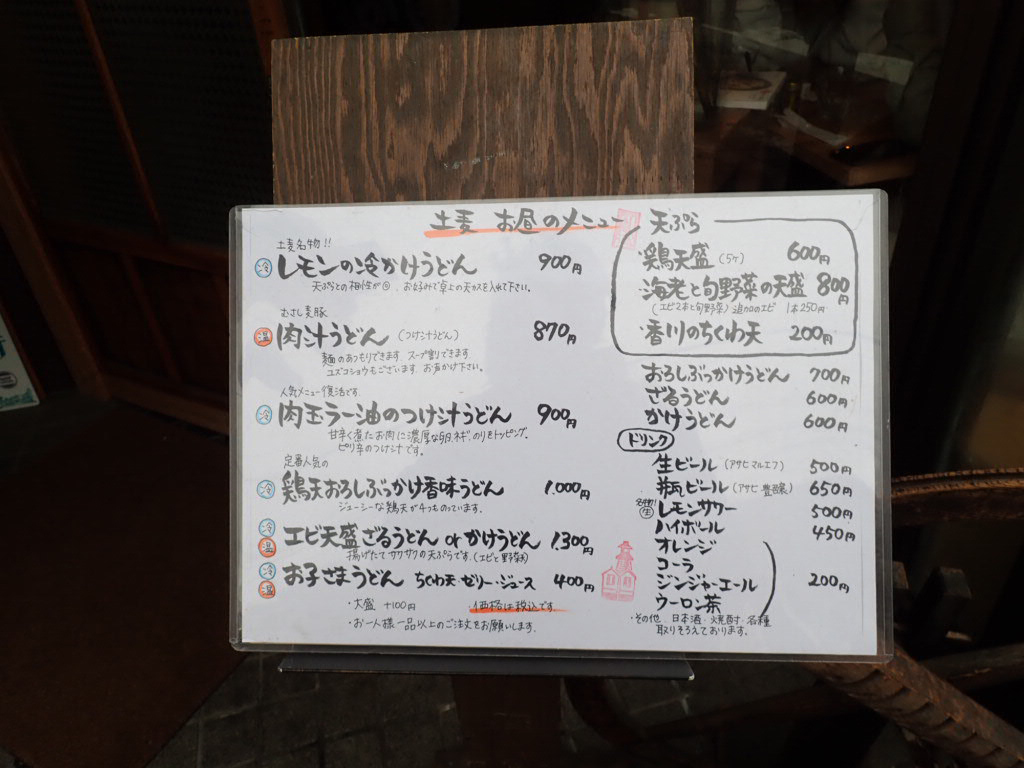 土麦 お昼のメニュー
土麦名物!!
冷 レモンの冷かけうどん 900円
天ぷらとの相性が◎、お好みで卓上の天カスを入れて下さい。
むさし麦豚
温 肉汁うどん (つけ汁うどん) 870円
麺のあつもりできます。スープ割りできます。
ユズコショウもございます。お声かけ下さい。
人気メニュー復活です
冷 肉玉ラー油のつけ汁うどん 900円
甘辛く煮たお肉に濃厚な卵、ネギ、のりをトッピング。
ピリ辛のつけ汁です。
定番人気の
冷 鶏天おろしぶっかけ香味うどん 1.000円
ジューシーな鶏天が4つものっています。
冷 温 エビ天盛ざるうどん orかけうどん 1.300円
揚げたてサクサクの天ぷらです。(エビと野菜)
冷 温 お子さまうどん ちくわ天・ゼリー・ジュース 400円
・大盛 +100円 ・価格は税込です
・お一人様一品以上のご注文をお願いします。
天ぷら
・鶏天盛 (5ヶ) 600円
・海老と旬野菜の天盛 800円
(エビ2本と旬野菜) 追加のエビ 1本250円
・香川のちくわ天 200円
おろしぶっかけうどん 700円
ざるうどん 600円
かけうどん 600円
ドリンク
生ビール (アサヒマルエフ) 500円
瓶ビール (アサヒ 豊醸) 650円
名物! 生 レモンサワー 500円
ハイボール 450円
オレンジ
コーラ
ジンジャーエール 200円
ウーロン茶
・その他、日本酒・焼酎・各種
取りそろえております。